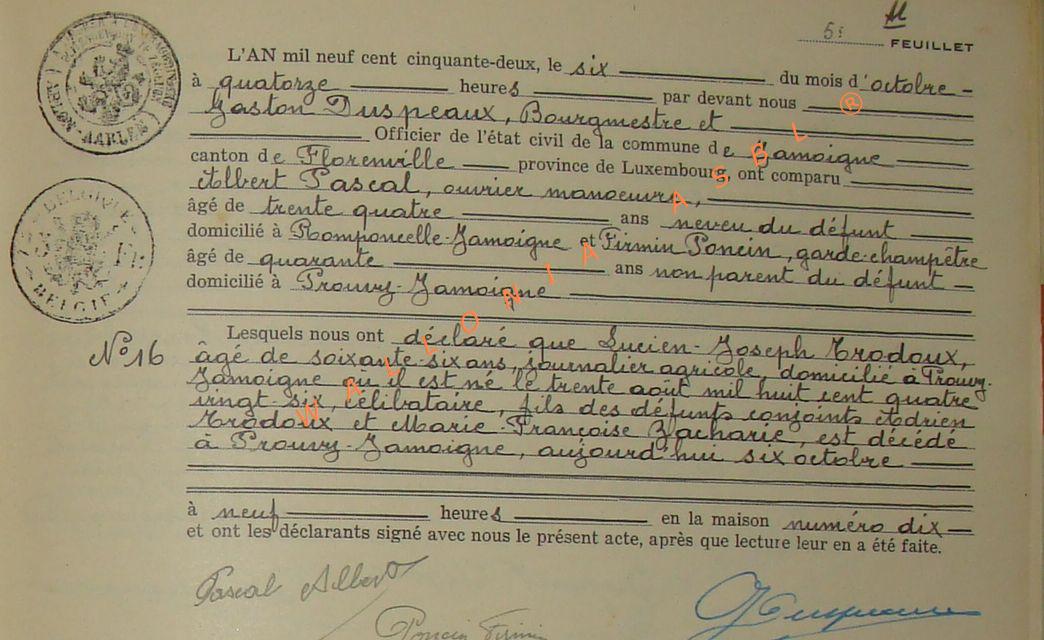 5e
FEUILLET
L'AN mil neuf cent cinquante-deux, le six du mois d'octobre
à quatorze heures par devant nous
Gaston Duspeaux, Bourgmestre et
Officier de l'état civil de la commune de Jamoigne
canton de Florenville province de Luxembourg, ont comparu
Albert Pascal, ouvrier manoeuvre,
âgé de trente quatre ans neveu du défunt
domicilié à Romponcelle-Jamoigne et Firmin Poncin, garde-champêtre
âgé de quarante ans non parent du défunt
domicilié à Prouvy-Jamoigne
WALLONIA ASBL ®
Lesquels nous ont déclaré que Lucien-Joseph Trodoux,
N° 16
âgé de soixante-six ans, journalier agricole, domicilié à Prouvy-
Jamoigne où il est né le trente août mil huit cent quatre
vingt-six, célibataire, fils des défunts conjoints Adrien
Trodoux et Marie-Françoise Zacharie, est décédé
à Prouvy-Jamoigne, aujourd'hui six octobre
à neuf heures en la maison numéro dix
et ont les déclarants signé avec nous le présent acte, après que lecture leur en a été faite.
Pascal Albert
Poncin Firmin
BELGIQUE
BELGIE
ARLON-AARLEN